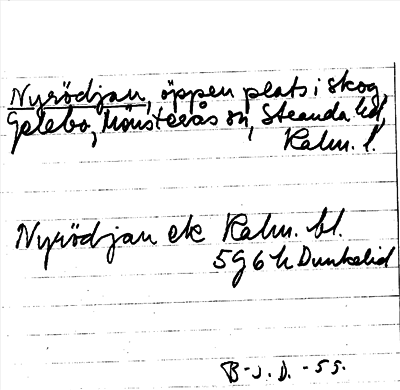 Nyrödjan, öppen plats i skog,
Gelebo, Mönsterås sn, Stranda hd,
Kalm. l.
Nyrödjan ek Kalm. bl.
5g6h Dunkelid
B-J.D. -55.